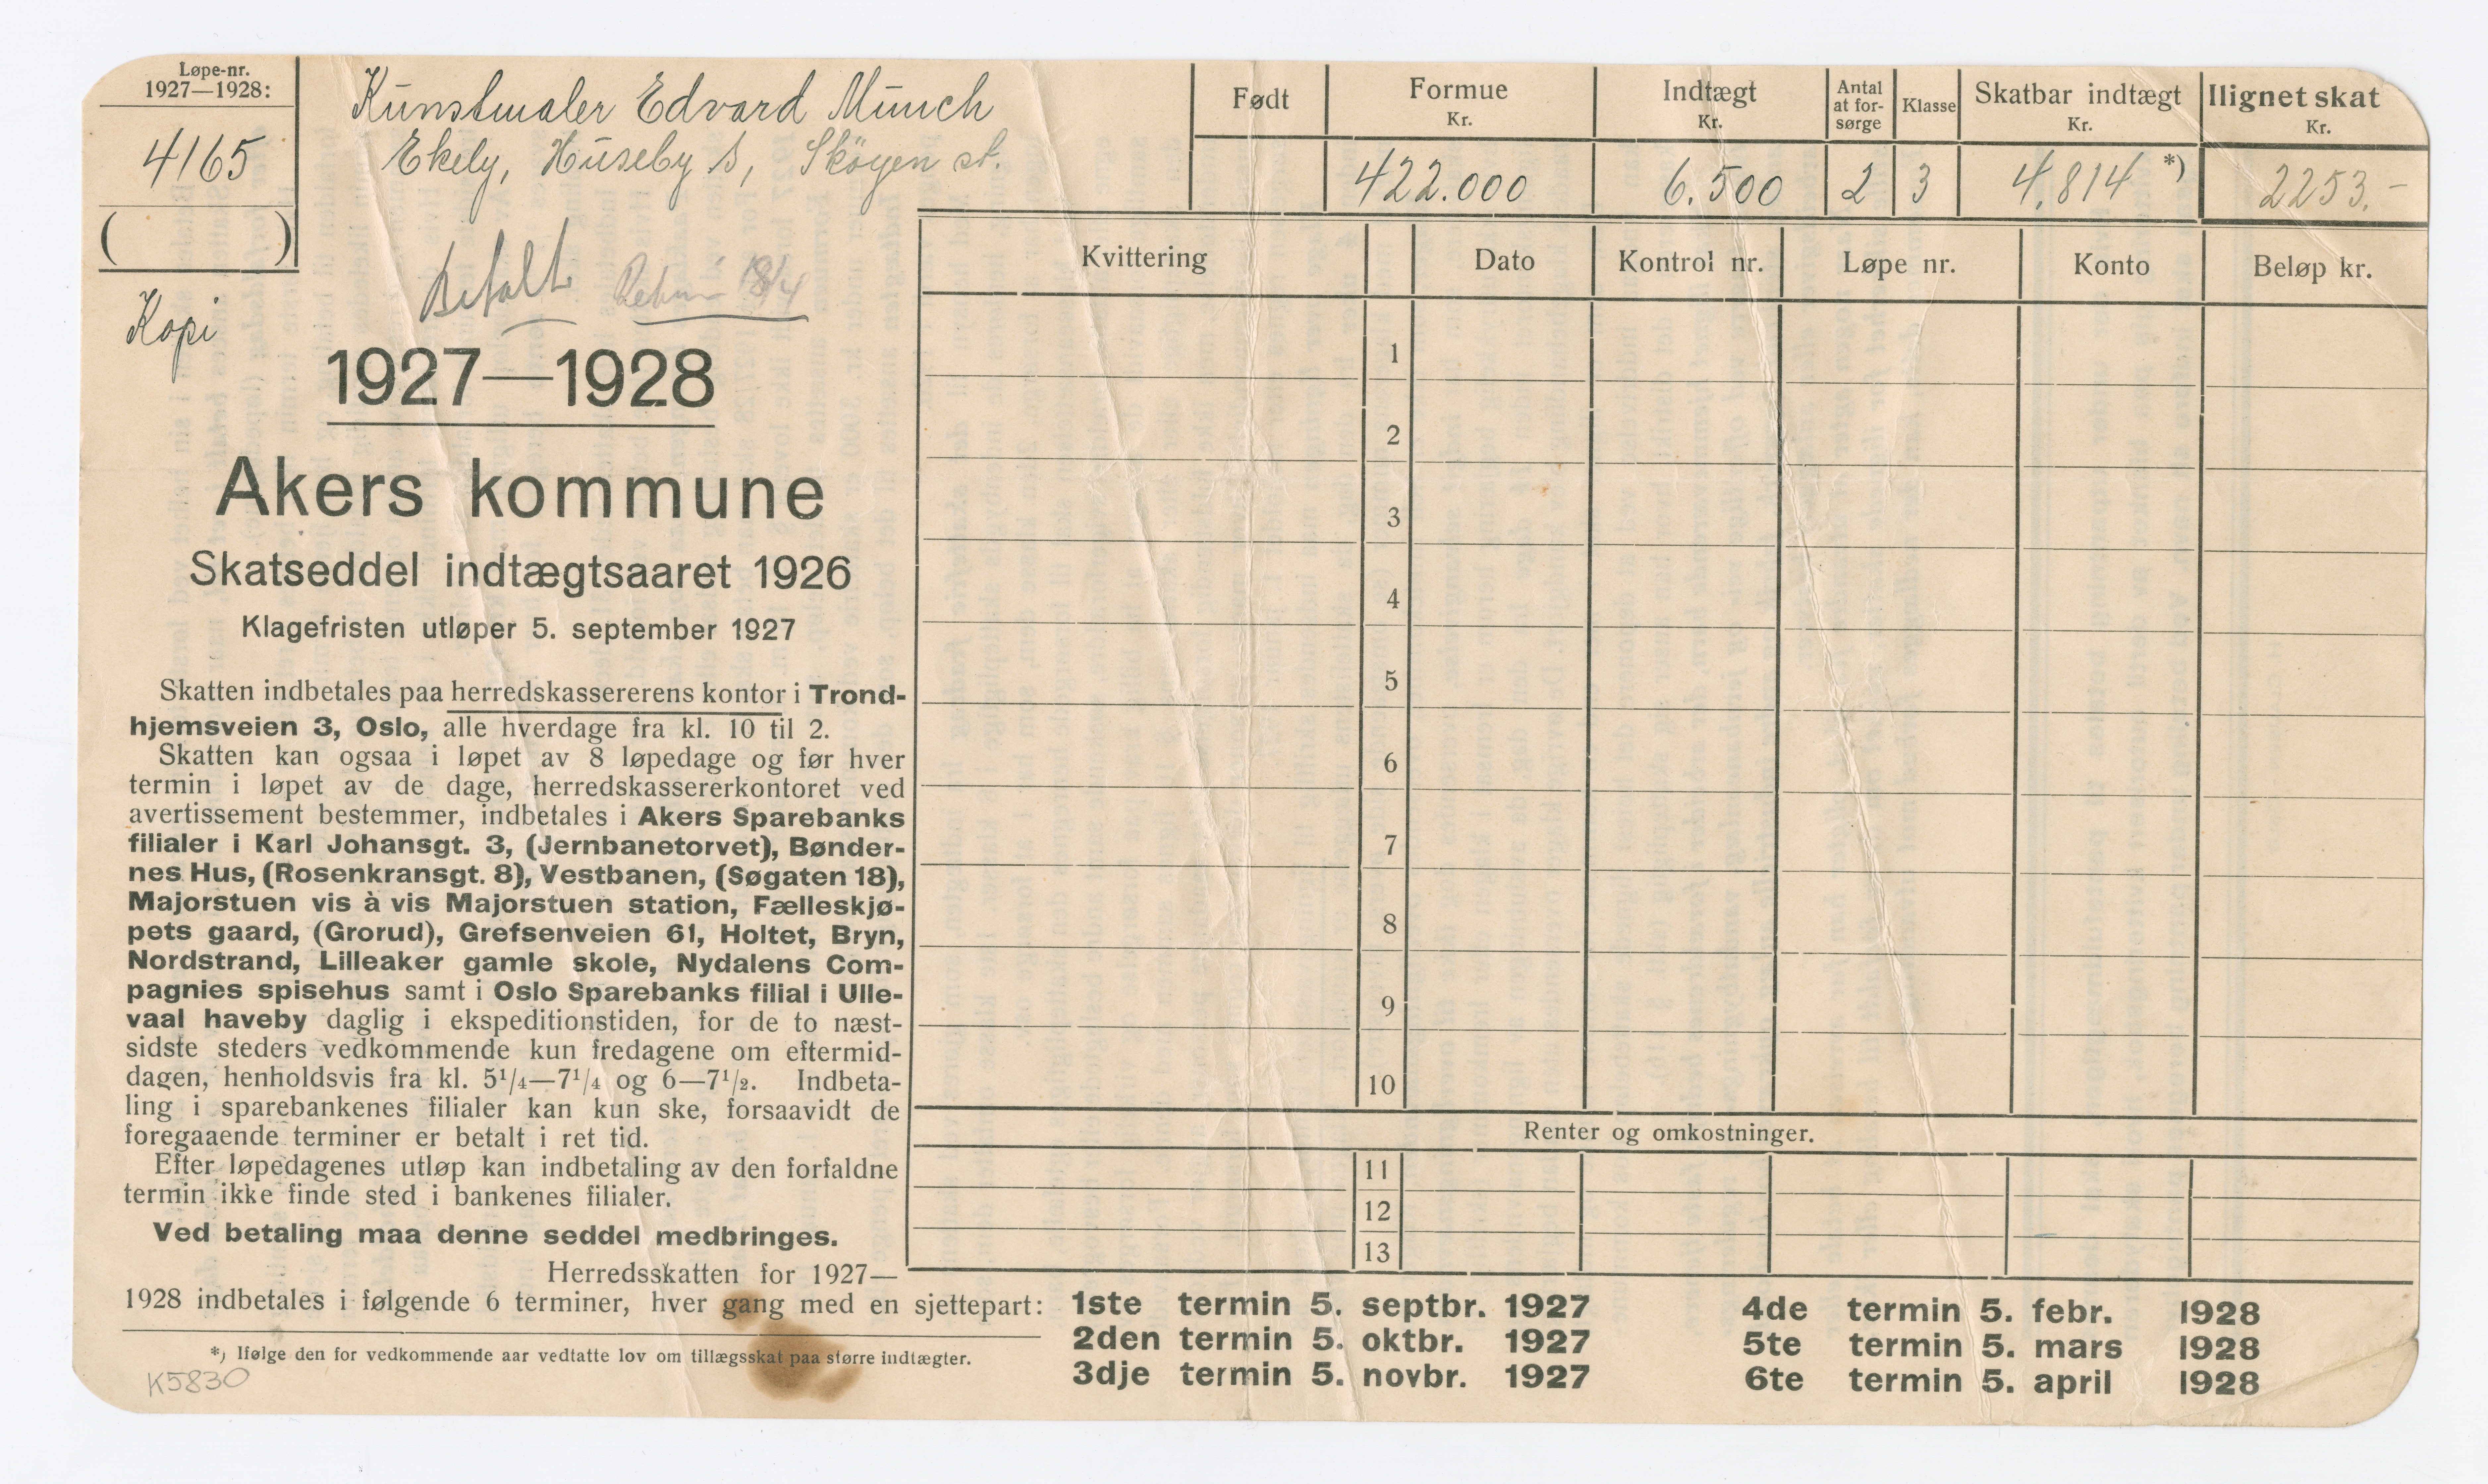 Løpe-nr.
1927—1928:
4165
( )
Kopi
Kunstmaler Edvard Munch
Ekely, Huseby S, Sköyen st.
Betalt 18/4
Født
Formue
Kr.
422.000
Indtægt
Kr.
6.500
Antal
at for-
sørge
2
Klasse
3
Skatbar indtægt
Kr.
4,814 *)
Ilignet skat
Kr.
2253.-
Kvittering Dato Kontrol nr. Løpe nr. Konto Beløp kr.
1
2
3
4
5
6
7
8
9
10
Renter og omkostninger.
11
12
13
1927—1928
Akers kommune
Skatseddel indtægtsaaret 1926
Klagefristen utløper 5. september 1927
Skatten indbetales paa herredskassererens kontor i Trond-
hjemsveien 3, Oslo, alle hverdage fra kl. 10 til 2.
Skatten kan ogsaa i løpet av 8 løpedage og før hver
termin i løpet av de dage, herredskassererkontoret ved
avertissement bestemmer, indbetales i Akers Sparebanks
filialer i Karl Johansgt. 3, (Jernbanetorvet), Bønder-
nes Hus, (Rosenkransgt. 8), Vestbanen, (Søgaten 18),
Majorstuen vis à vis Majorstuen station, Fælleskjø-
pets gaard, (Grorud), Grefsenveien 61, Holtet, Bryn,
Nordstrand, Lilleaker gamle skole, Nydalens Com-
pagnies spisehus samt i Oslo Sparebanks filial i Ulle-
vaal haveby daglig i ekspeditionstiden, for de to næst-
sidste steders vedkommende kun fredagene om eftermid-
dagen, henholdsvis fra kl. 5¹/₄—7¹/₄ og 6—7¹/₂. Indbeta-
ling i sparebankenes filialer kan kun ske, forsaavidt de
foregaaende terminer er betalt i ret tid.
Efter løpedagenes utløp kan indbetaling av den forfaldne
termin ikke finde sted i bankenes filialer.
Ved betaling maa denne seddel medbringes.
Herredsskatten for 1927—
1928 indbetales i følgende 6 terminer, hver gang med en sjettepart:
1ste termin 5. septbr. 1927
2den termin 5. oktbr. 1927
3dje termin 5. novbr. 1927
4de termin 5. febr. 1928
5te termin 5. mars 1928
6te termin 5. april 1928
*) Ifølge den for vedkommende aar vedtatte lov om tillægsskat paa større indtægter.
K5830